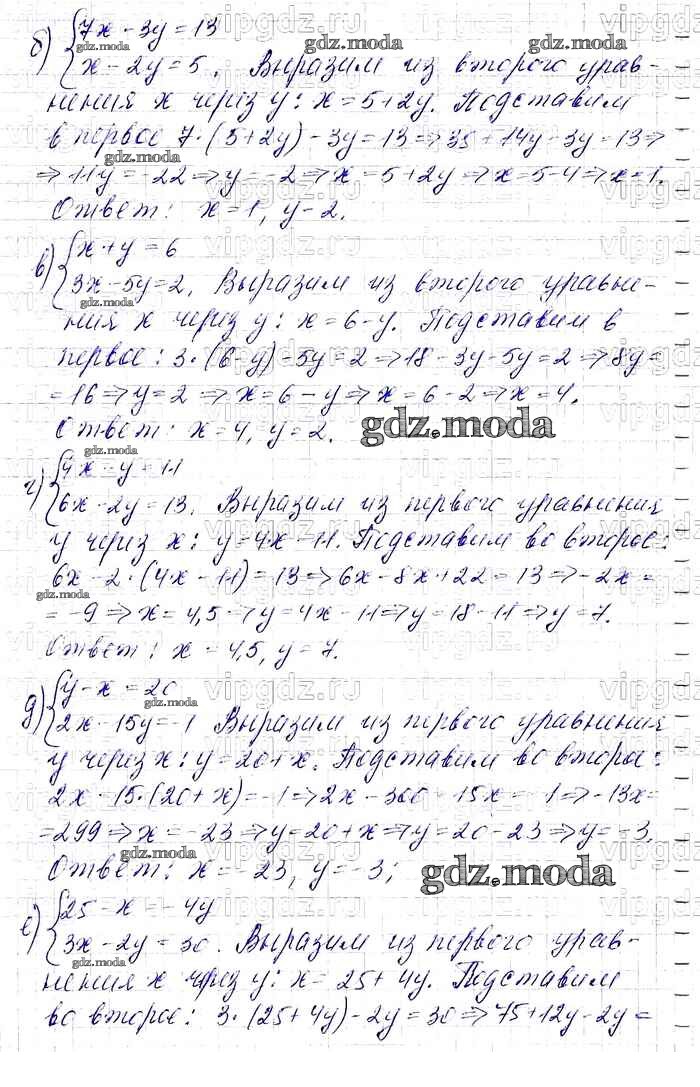 б) {7x - 3y = 13
{x - 2y = 5. Выразим из второго урав-
нения x через y: x = 5 + 2y. Подставим
в первое 7·(5+2y) - 3y = 13 => 35 + 14y - 3y = 13 =>
=> 11y = -22 => y = -2 => x = 5 + 2y => x = 5 - 4 => x = 1.
Ответ: x = 1, y - 2.
в) {x + y = 6
{3x - 5y = 2. Выразим из второго уравне-
ния x через y: x = 6 - y. Подставим в
первое: 3·(6 - y) - 5y = 2 => 18 - 3y - 5y = 2 => 8y =
= 16 => y = 2 => x = 6 - y => x = 6 - 2 => x = 4.
Ответ: x = 4, y = 2.
gdz.moda
г) {4x - y = 11
{6x - 2y = 13. Выразим из первого уравнения
y через x: y = 4x - 11. Подставим во второе:
6x - 2·(4x - 11) = 13 => 6x - 8x + 22 = 13 => -2x =
= -9 => x = 4,5 -> y = 4x - 11 => y = 18 - 11 => y = 7.
Ответ: x = 4,5, y = 7.
д) {y - x = 20
{2x - 15y = -1 Выразим из первого уравнения
y через x: y = 20 + x. Подставим во второе:
2x - 15·(20 + x) = -1 => 2x - 300 - 15x = -1 => -13x =
= 299 => x = -23 => y = 20 + x => y = 20 - 23 => y = -3.
Ответ: x = -23, y = -3;
gdz.moda
е) {25 - x = -4y
{3x - 2y = 30. Выразим из первого урав-
нения x через y: x = 25 + 4y. Подставим
во второе: 3·(25 + 4y) - 2y = 30 => 75 + 12y - 2y =